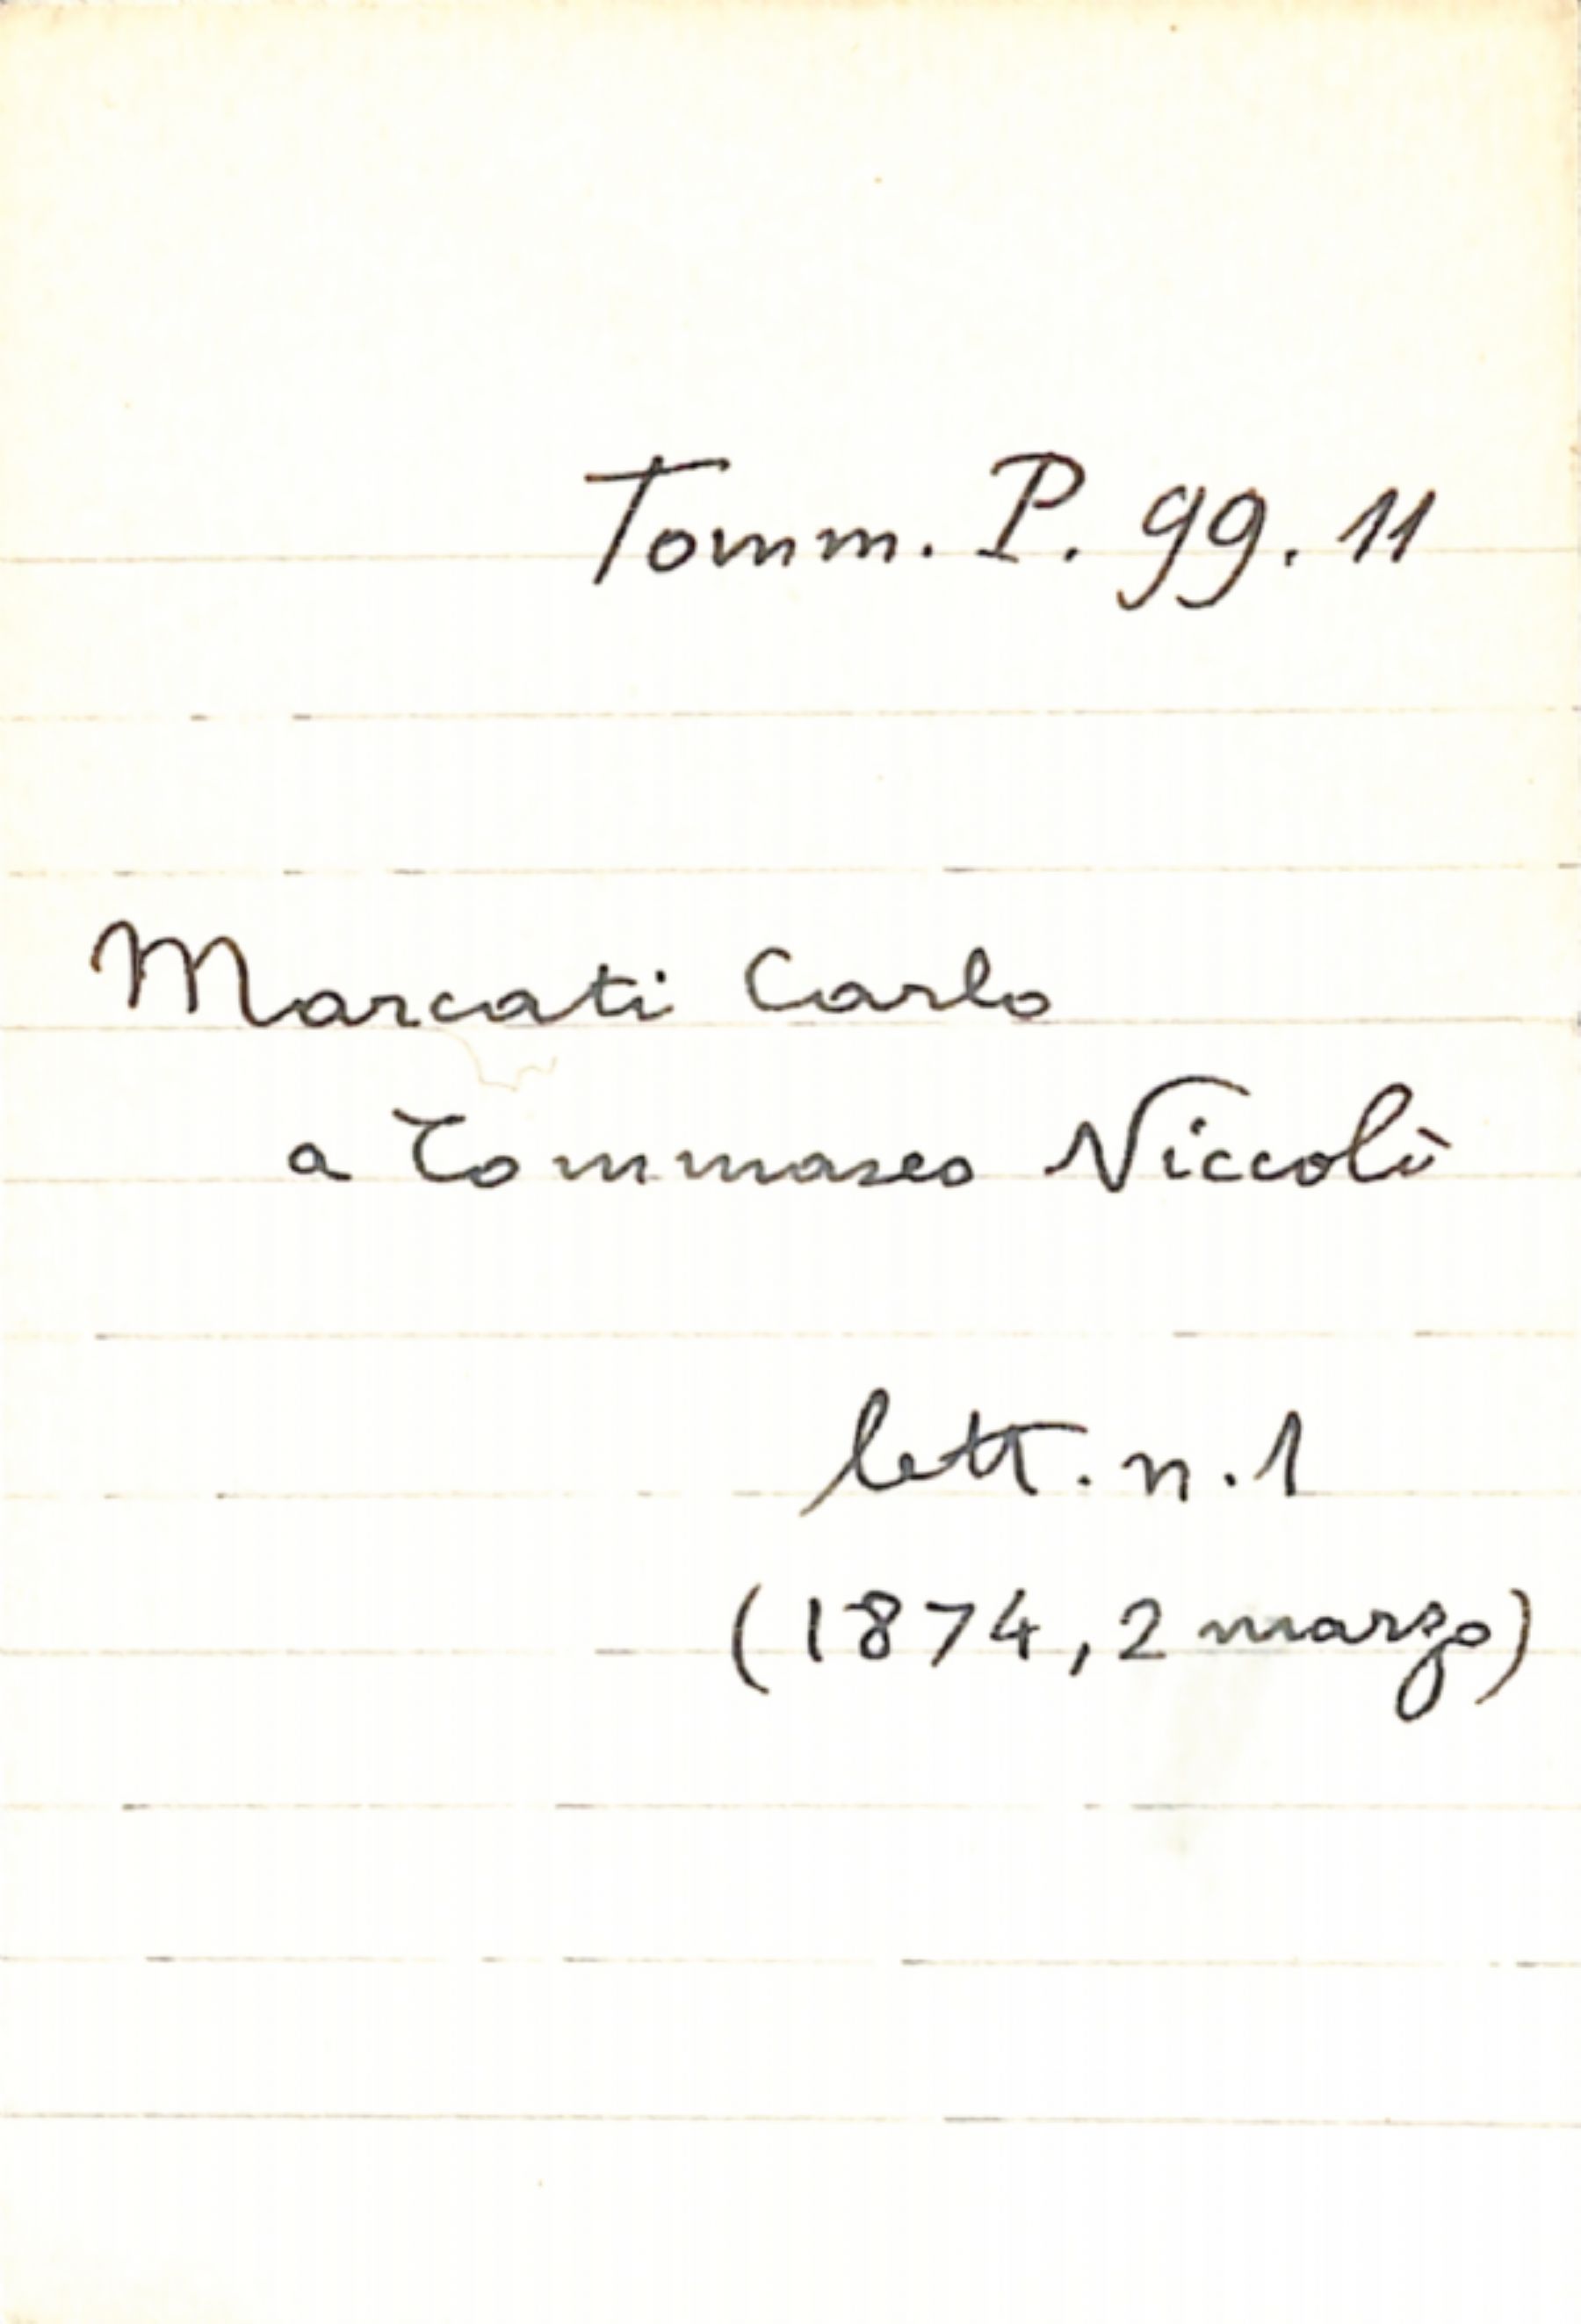 Tomm. P. 99. 11
Marcati Carlo
a Tommaseo Niccolò
lett. n. 1
(1874, 2 marzo)